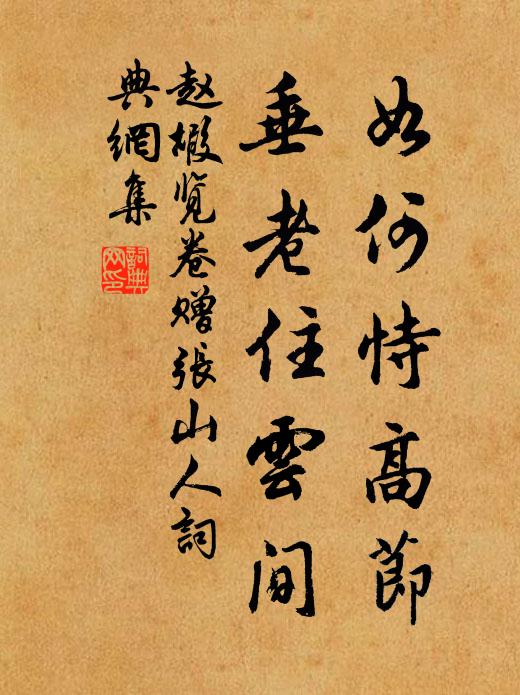 如何恃高節
垂老住雲間
赵嘏览卷赠張山人詞
典網集
詞典
网印